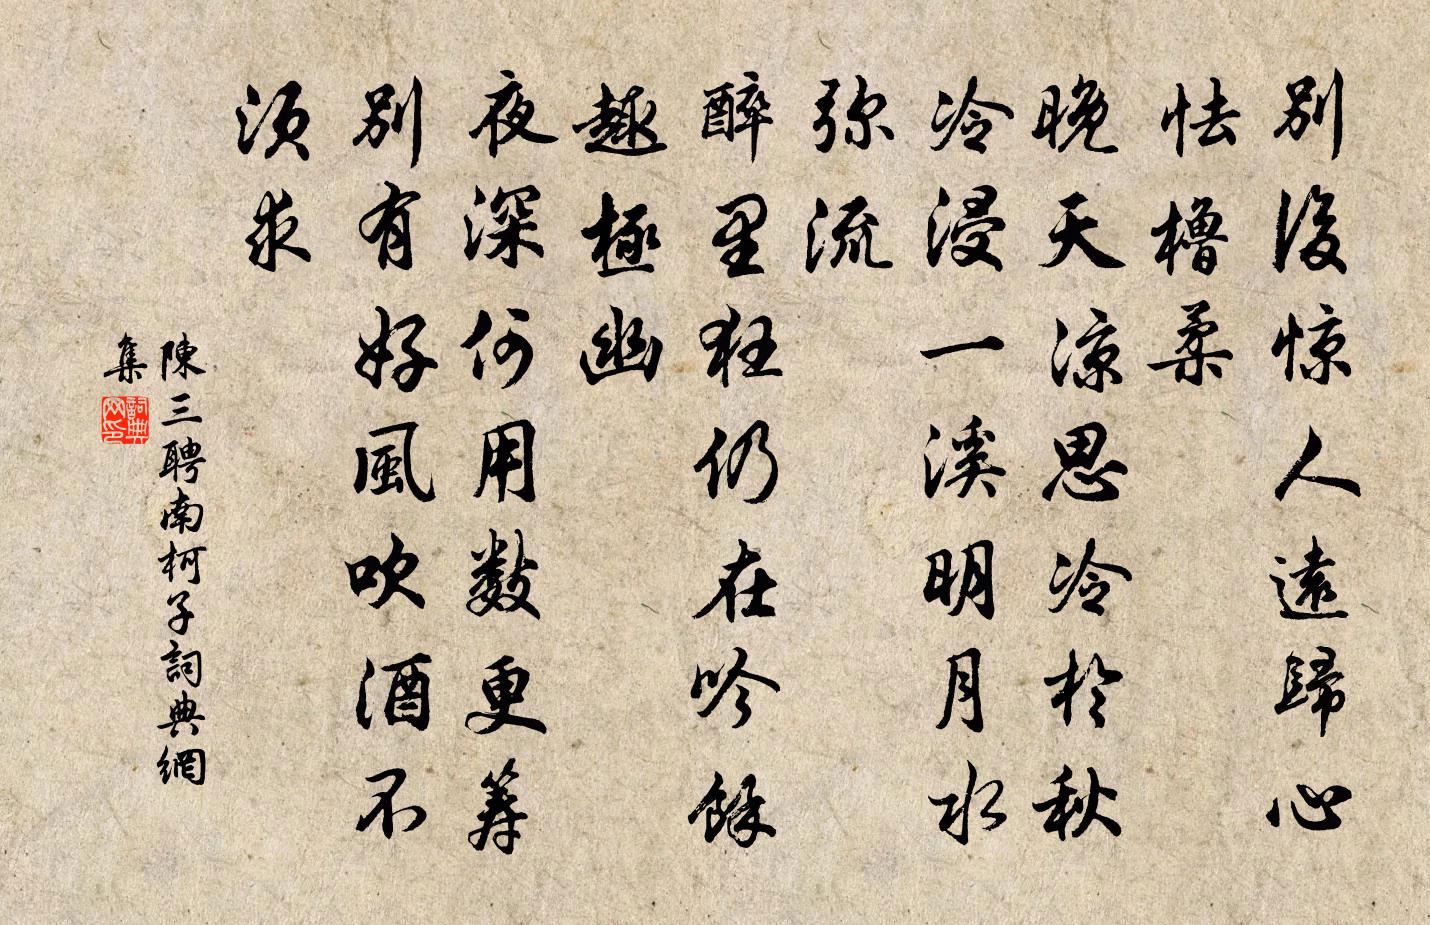 別後惊人遠歸心
怯櫓柔
晚天涼思冷於秋
冷浸一溪明月水
弥流
醉里狂仍在吟餘
趣極幽
夜深何用數更筹
別有好風吹酒不
須求
陳三聘南柯子詞典網
集
詞典
网印